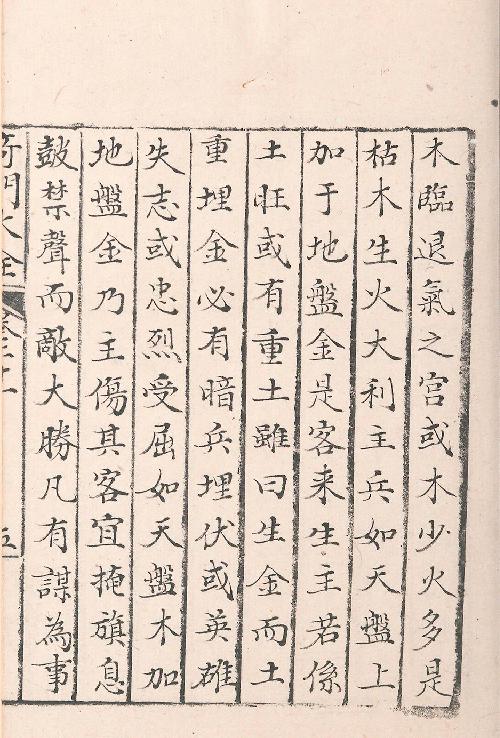 木臨退氣之宮或木少火多是
枯木生火大利主兵如天盤上
加于地盤金是客来生主若係
土旺或有重土雖曰生金而土
重埋金必有暗兵埋伏或英雄
失志或忠烈受屈如天盤木加
地盤金乃主傷其客宜掩旗息
鼓禁聲而敵大勝凡有謀為事